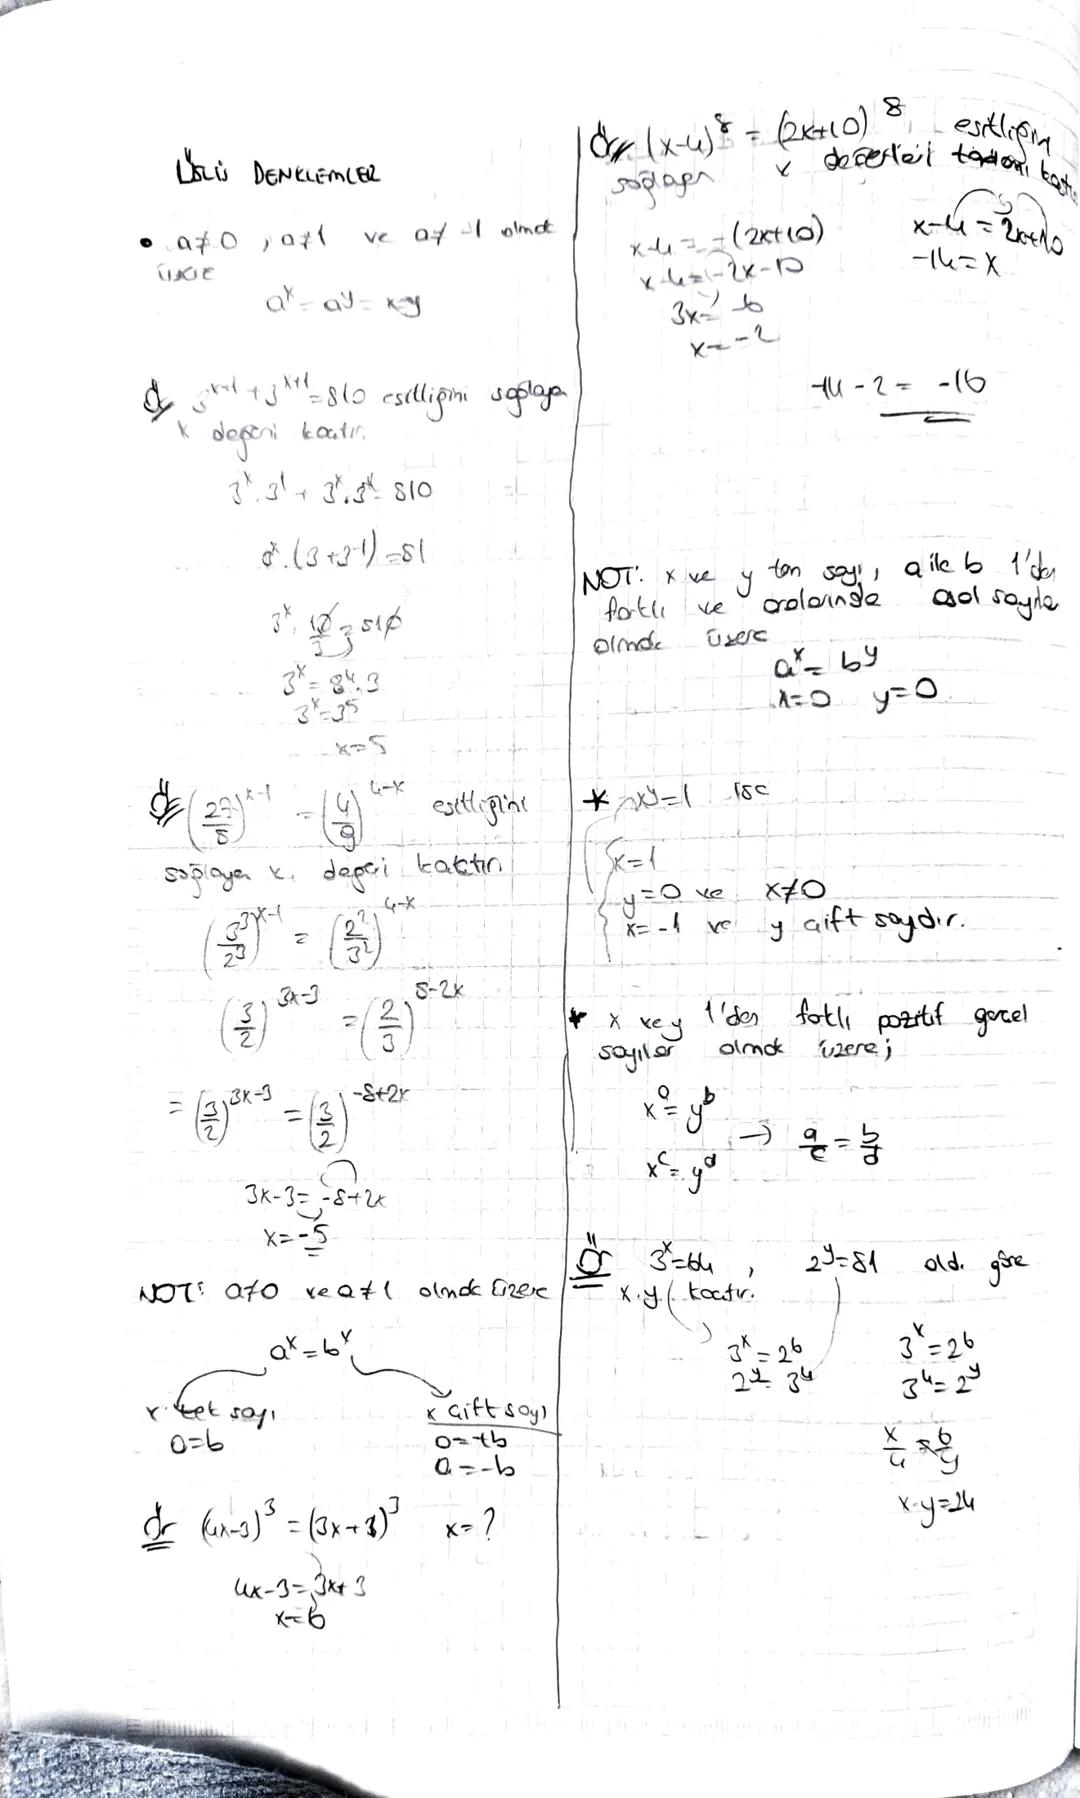 ÜSLÜ DENKLEMLER
• a≠0, a≠1 ve a≠-1 olmak
üzere
aˣ = aʸ = x=y
Ör 3ˣ⁺¹ = 810 eşitliğini sağlayan
x değeri kaçtır.
3ˣ.3¹ + 3ˣ. = 810
.(3+3⁻¹) = 81
3ˣ. 10/3 = 810
3ˣ = 3⁴.3
3ˣ = 3⁵
x=5
Ör (27/8)ˣ⁻¹ = (4/9)⁴⁻ˣ eşitliğini
sağlayan x. değeri kaçtır
(3³/2³)ˣ⁻¹ = (2²/3²)⁴⁻ˣ
(3/2)³ˣ⁻³ = (2/3)⁸⁻²ˣ
= (3/2)³ˣ⁻³ = (3/2)⁻⁸⁺²ˣ
3x-3 = -8+2x
x = -5
NOT: a≠0 ve a≠1 olmak üzere
aˣ = bˣ
x tek sayı
a=b
x çift sayı
a=+b
a=-b
Ör (4x-3)³ = (3x+3)³ x=?
4x-3 = 3x+3
x=6
Ör (x-4)⁸ = (2x+10)⁸ eşitliğini
sağlayan x değerleri toplamı kaçtır
x-4 = -(2x+10)
x-4 = -2x-10
3x = -6
x = -2
x-4 = 2x+10
-14 = x
-14 - 2 = -16
NOT: x ve y tam sayı, a ile b 1'den
farklı ve aralarında asal sayılar
olmak üzere
aˣ = bʸ
x=0 y=0
* xʸ=1 ise
x=1
y=0 ve x≠0
x=-1 ve y çift sayıdır.
* x ve y 1'den farklı pozitif gerçel
sayılar olmak üzere;
xᵃ = yᵇ
xᶜ = yᵈ → a/c = b/d
Ör 3ˣ=64, 2ʸ=81 old. göre
x.y kaçtır.
3ˣ = 2⁶
2ʸ = 3⁴
3ˣ = 2⁶
3⁴ = 2ʸ
x/4 = 6/y
x.y=24